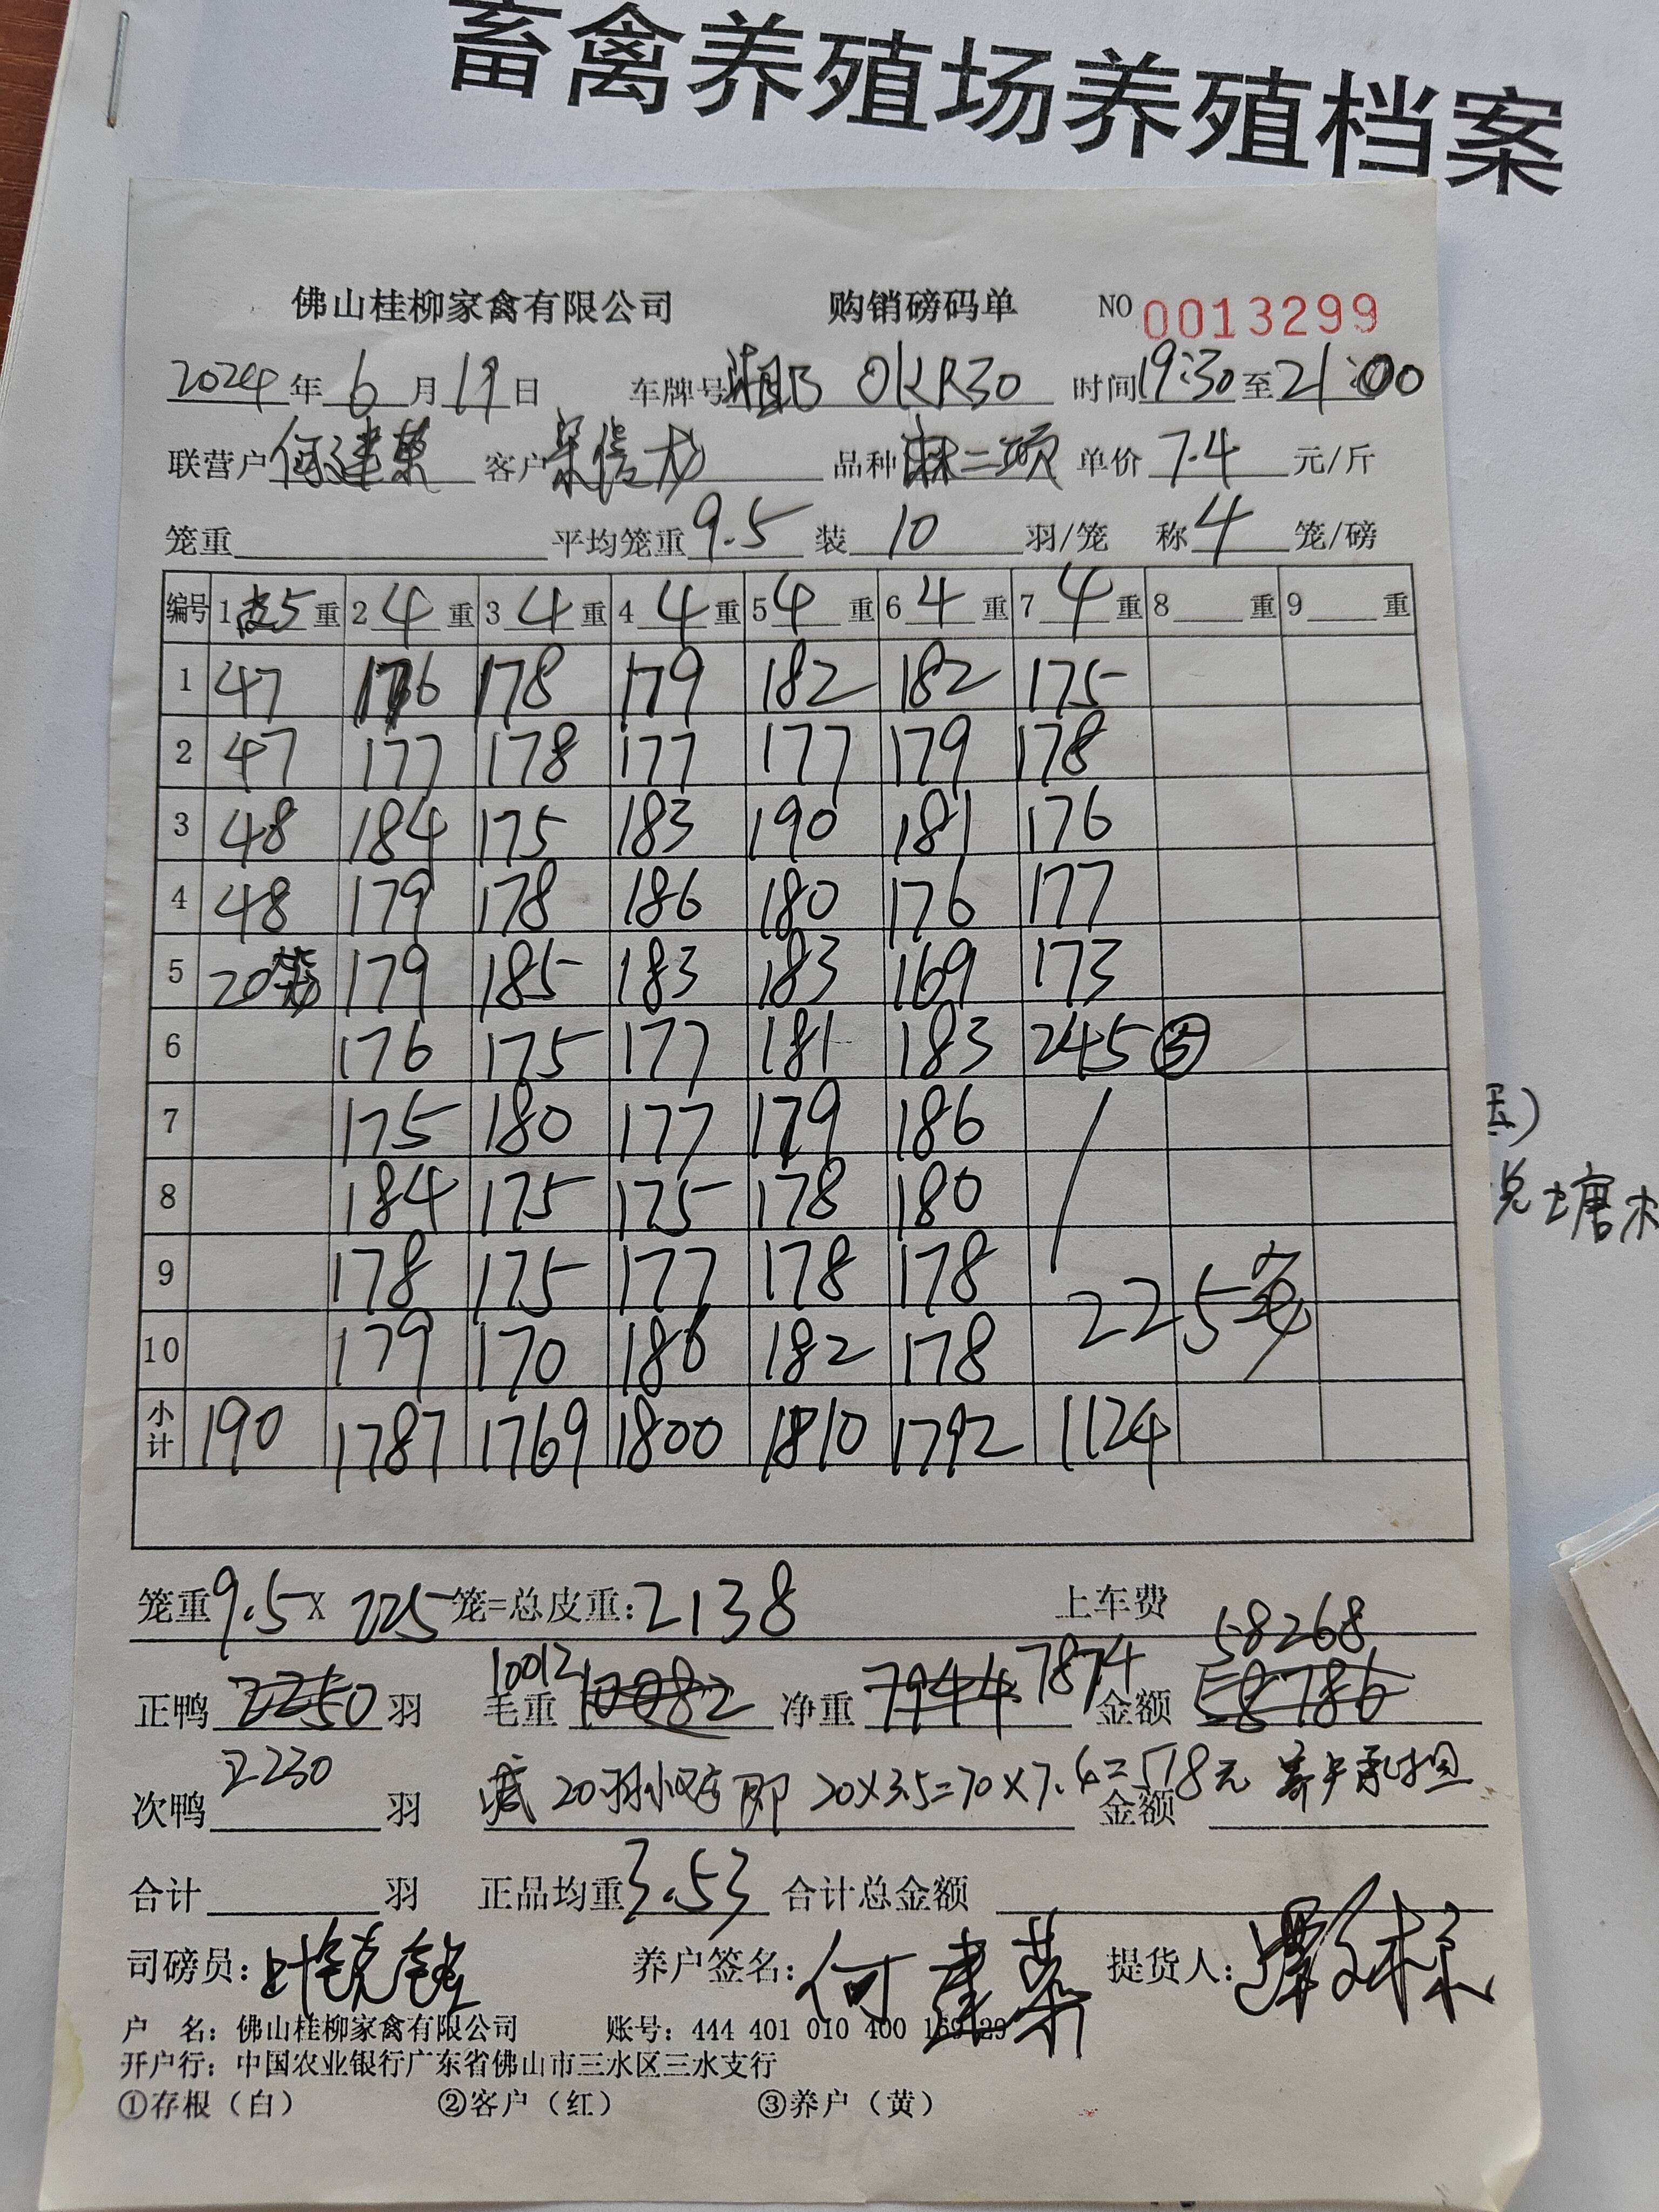 畜禽养殖场养殖档案
佛山桂柳家禽有限公司 购销磅码单 NO 0013299
2024年6月19日 车牌号 0KR30 时间19:30至21:00
联营户何建荣 客户 品种 二项 单价7.4元/斤
笼重 平均笼重9.5 装10羽/笼 称4笼/磅
编号 1 皮5重 2 4重 3 4重 4 4重 5 4重 6 4重 7 4重 8 重 9 重
1 47 176 178 179 182 182 175
2 47 177 178 177 177 179 178
3 48 184 175 183 190 181 176
4 48 179 178 186 180 176 177
5 20笼 179 185 183 183 169 173
6 176 175 177 181 183 245 ⑤
7 175 180 177 179 186
8 184 175 175 178 180
9 178 175 177 178 178
225笼
10 179 170 186 182 178
小计 190 1787 1769 1800 1810 1792 1124
笼重9.5X225笼=总皮重:2138 上车费
58268
10012 7874
正鸭2250羽 毛重10082 净重7944 金额58786
2230 减20羽小鸭即20X3.5=70X7.4=518元 客户承担
次鸭 羽 金额
合计 羽 正品均重3.53 合计总金额
司磅员: 养户签名:何建荣 提货人:
户 名:佛山桂柳家禽有限公司 账号:444 401 010 400 159 29
开户行:中国农业银行广东省佛山市三水区三水支行
①存根(白) ②客户(红) ③养户(黄)